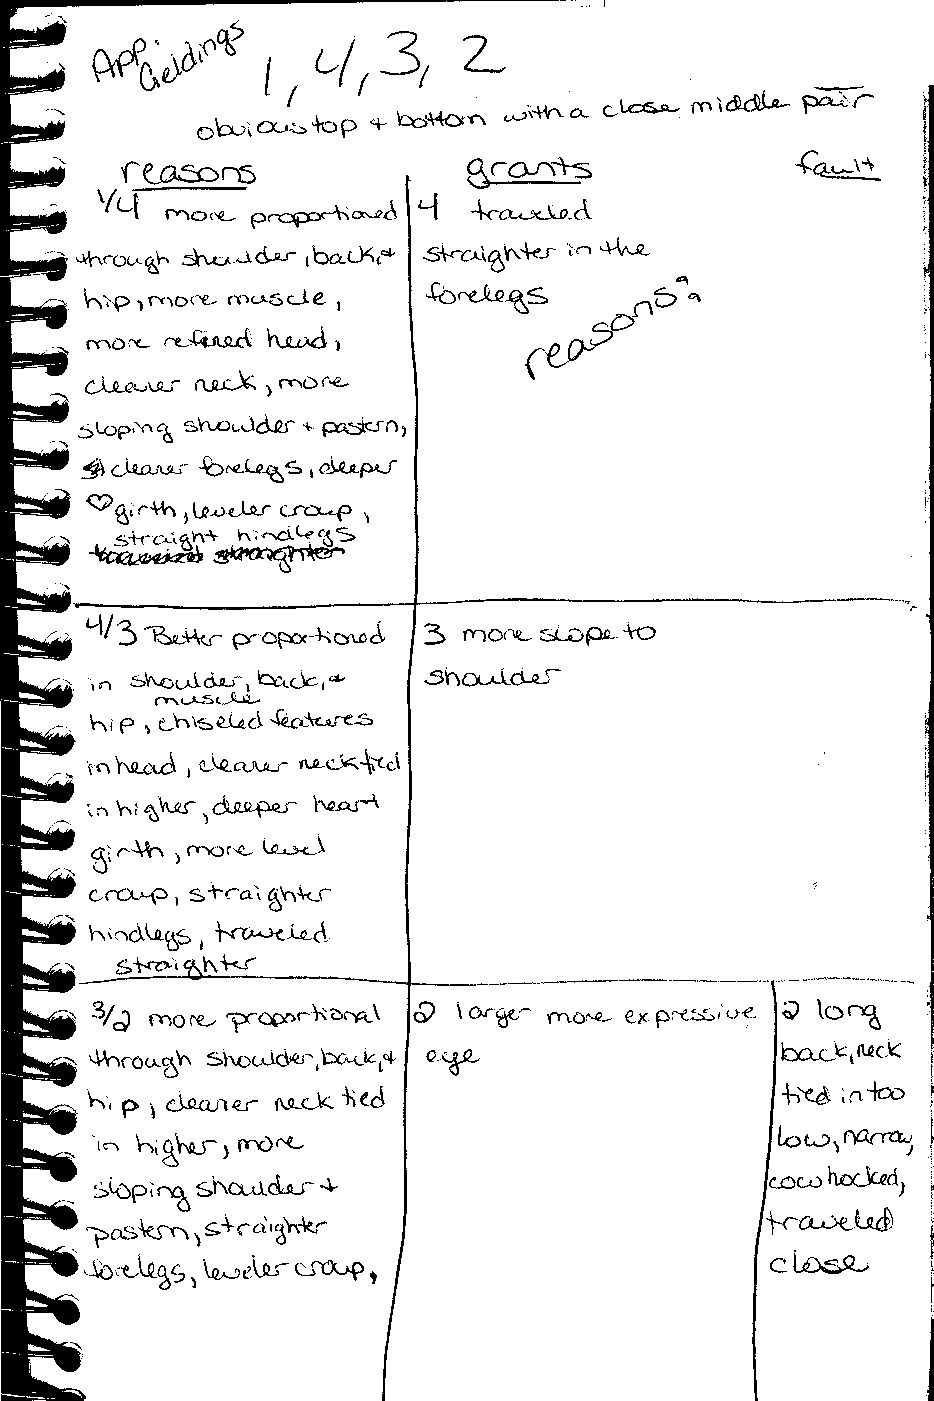 App. Geldings
1, 4, 3, 2
obvious top + bottom with a close middle pair
reasons
grants
fault
1/4 more proportioned
through shoulder, back, +
hip, more muscle,
more refined head,
cleaner neck, more
sloping shoulder + pastern,
cleaner forelegs, deeper
♡ girth, leveler croup,
straight hindlegs
traveled straighter
4 traveled
straighter in the
forelegs
reasons?
4/3 Better proportioned
in shoulder, back, +
muscle
hip, chiseled features
in head, cleaner neck tied
in higher, deeper heart
girth, more level
croup, straighter
hindlegs, traveled
straighter
3 more slope to
shoulder
3/2 more proportional
through shoulder, back, +
hip, cleaner neck tied
in higher, more
sloping shoulder +
pastern, straighter
forelegs, leveler croup,
2 larger more expressive
eye
2 long
back, neck
tied in too
low, narrow,
cow hocked,
traveled
close